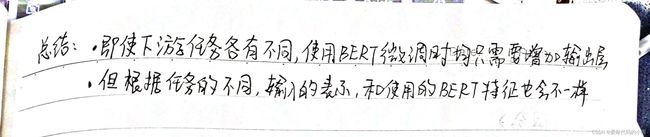 总结：·即使下游任务各有不同，使用BERT微调时均只需要增加输出层
·但根据任务的不同，输入的表示，和使用的BERT特征也会不一样